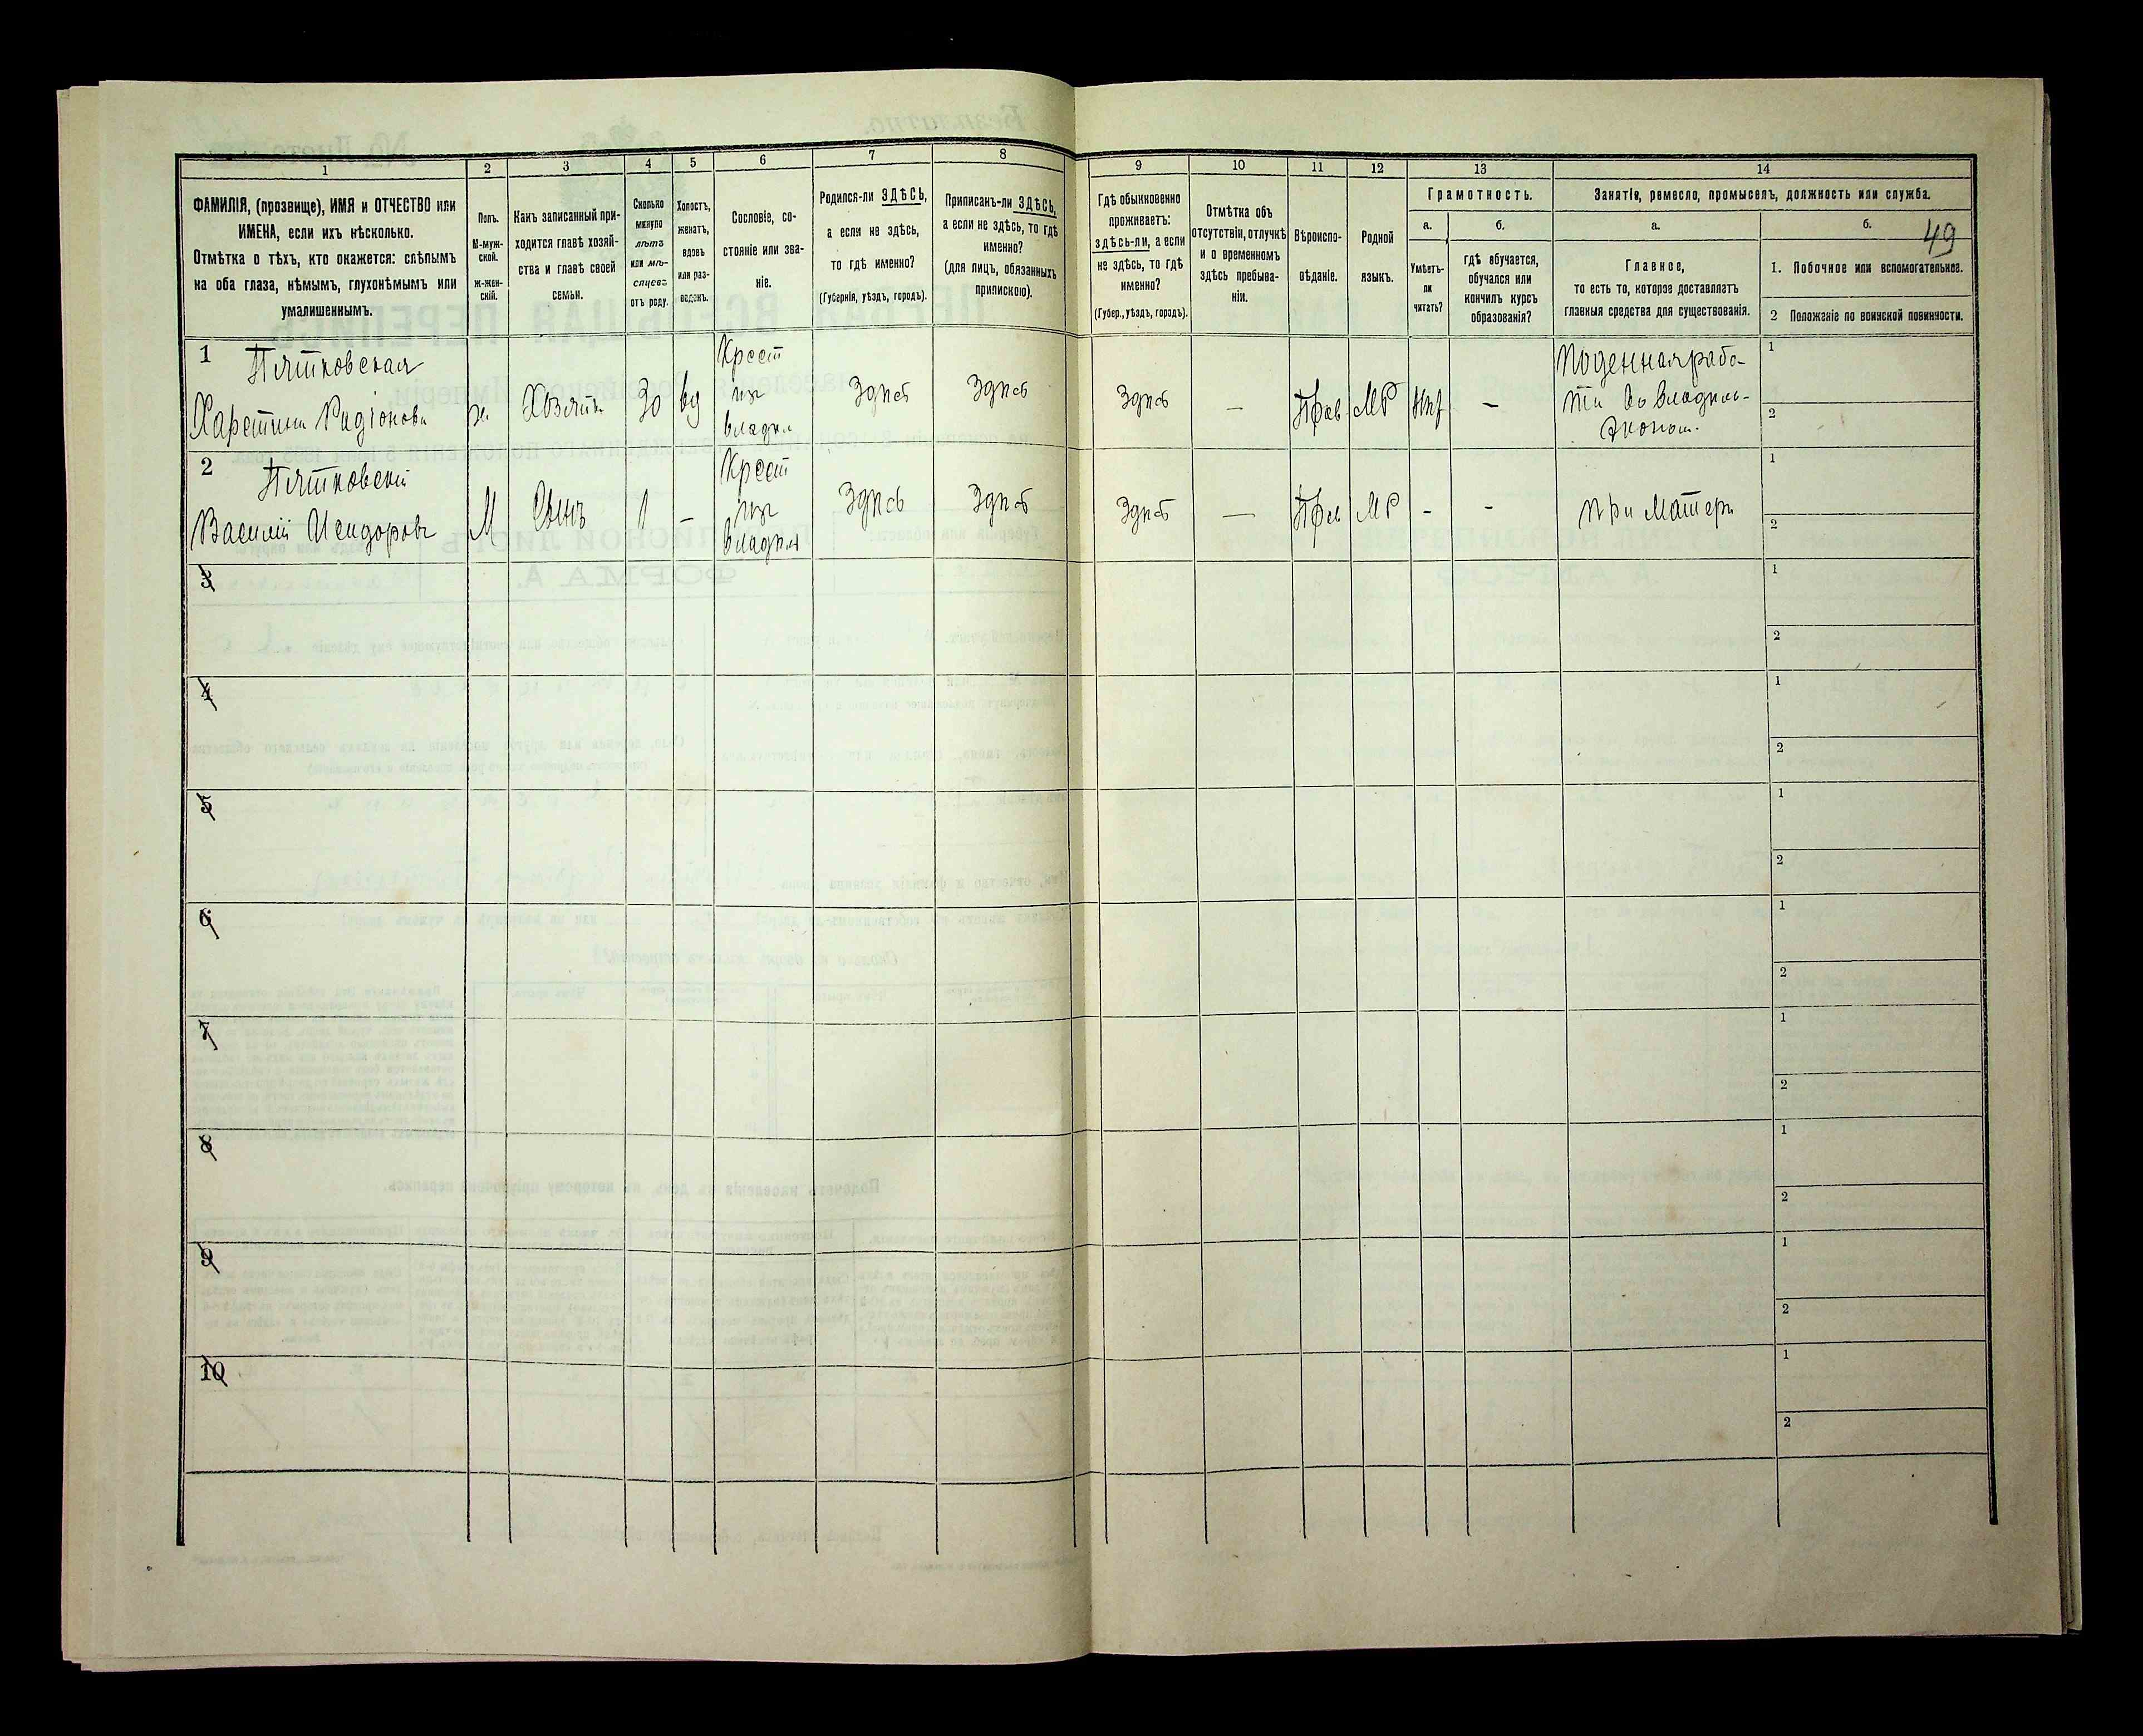 1 2 3 4 5 6 7 8 9 10 11 12 13 14
ФАМИЛІЯ, (прозвище), ИМЯ и ОТЧЕСТВО или
ИМЕНА, если ихъ нѣсколько.
Отмѣтка о тѣхъ, кто окажется: слѣпымъ
на оба глаза, нѣмымъ, глухонѣмымъ или
умалишеннымъ.
Полъ.
М-муж-
ской.
ж-жен-
скій.
Какъ записанный при-
ходится главѣ хозяй-
ства и главѣ своей
семьи.
Сколько
минуло
лѣтъ
или мѣ-
сяцевъ
отъ роду.
Холостъ,
женатъ,
вдовъ
или раз-
веденъ.
Сословіе, со-
стояніе или зва-
ніе.
Родился-ли ЗДѢСЬ,
а если не здѣсь,
то гдѣ именно?
(Губернія, уѣздъ, городъ).
Приписанъ-ли ЗДѢСЬ,
а если не здѣсь, то гдѣ
именно?
(для лицъ, обязанныхъ
припискою).
Гдѣ обыкновенно
проживаетъ:
здѣсь-ли, а если
не здѣсь, то гдѣ
именно?
(Губер., уѣздъ, городъ).
Отмѣтка объ
отсутствіи, отлучкѣ
и о временномъ
здѣсь пребыва-
ніи.
Вѣроиспо-
вѣданіе.
Родной
языкъ.
Грамотность.
а.
Умѣетъ-
ли
читать?
б.
гдѣ обучается,
обучался или
кончилъ курсъ
образованія?
Занятіе, ремесло, промыселъ, должность или служба.
а.
Главное,
то есть то, которое доставляетъ
главныя средства для существованія.
б.
49
1. Побочное или вспомогательное.
2 Положеніе по воинской повинности.
1 Пятковская
Харетина Радіонова
ж
Хозяйка
30
вд
Крест
изъ
владѣл
Здѣсь
Здѣсь
Здѣсь
—
Прав
МР
Нѣт
—
Поденная рабо-
та во владѣл-
эконом.
1
2
2 Пятковскій
Василій Исидоровъ
М
Сынъ
1
—
Крест
изъ
владѣл
Здѣсь
Здѣсь
Здѣсь
—
Прав
МР
-
-
при матери
1
2
3
1
2
4
1
2
5
1
2
6
1
2
7
1
2
8
1
2
9
1
2
10
1
2